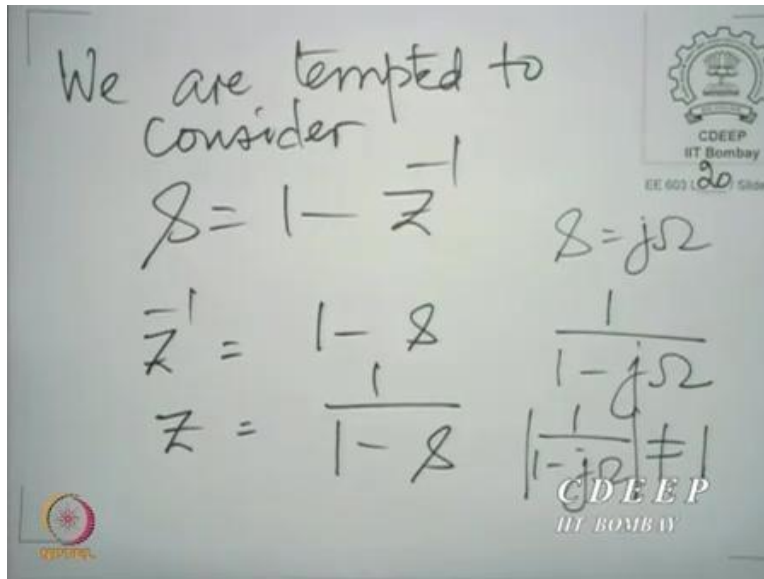 We are tempted to
consider
s = 1 - z^-1
z^-1 = 1 - s
z = 1/(1 - s)
s = jΩ
1/(1 - jΩ)
|1/(1 - jΩ)| ≠ 1
CDEEP
IIT Bombay
EE 603 L 20 / Slide
CDEEP
IIT BOMBAY
NPTEL